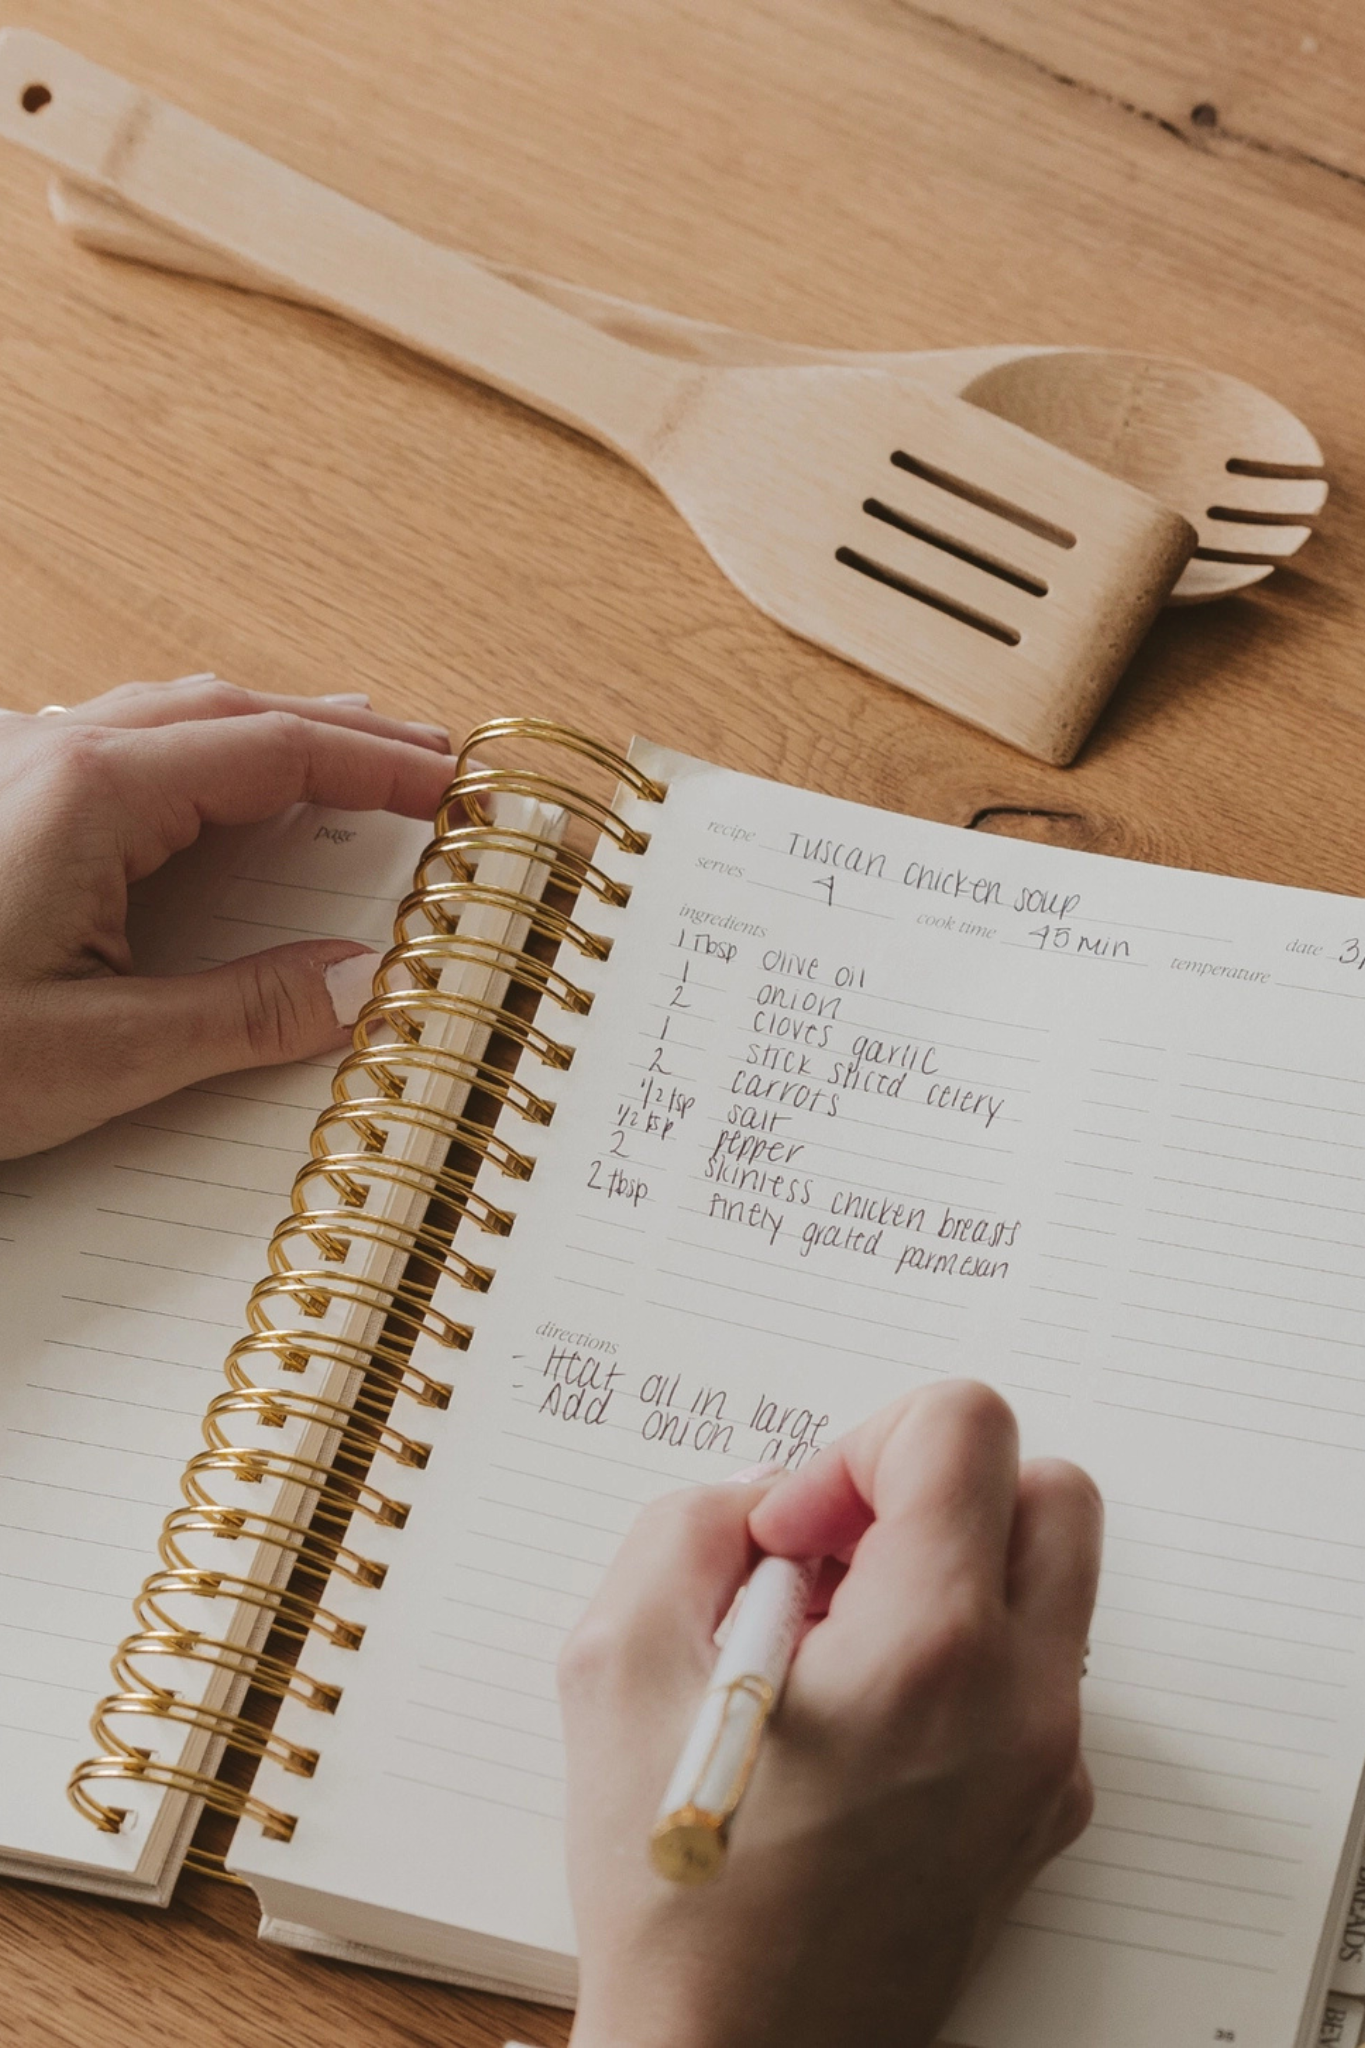 page
recipe Tuscan chicken soup
serves 4 cook time 45 min date 3/
ingredients temperature
1 Tbsp olive oil
1 onion
2 cloves garlic
1 stick sliced celery
2 carrots
1/2 tsp salt
1/2 tsp pepper
2 skinless chicken breasts
2 tbsp finely grated parmesan
directions
- Heat oil in large
- Add onion and
BREADS
BEV
35